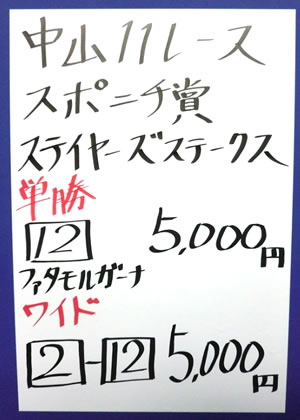 中山11レース
スポニチ賞
ステイヤーズステークス
単勝
12 5,000円
ファタモルガーナ
ワイド
2-12 5,000円